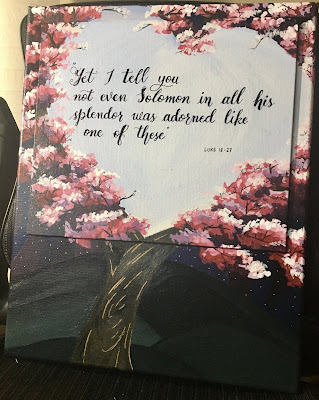 "Yet I tell you
not even Solomon in all his
splendor was adorned like
one of these"
LUKE 12:27